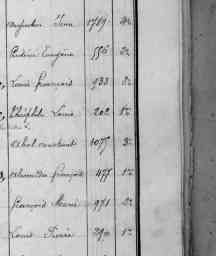 Jean 1769 3e
Eugène 556 2e
Louis François 933 2e
Théophile Louis 202 1e
Abel constant 1075 3e
Alexandre françois 477 1e
françois Marie 971 2e
Louis Pierre 290 1e